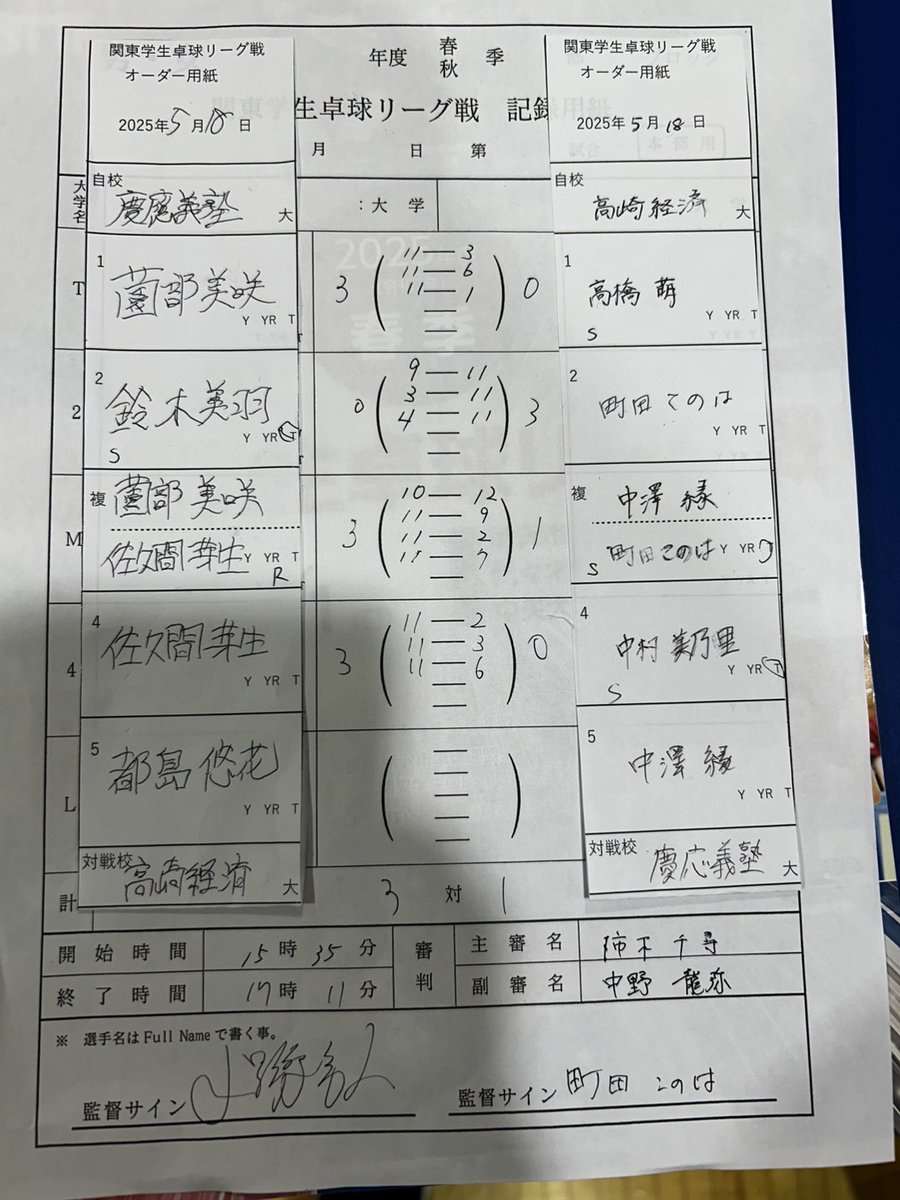 関東学生卓球リーグ戦
オーダー用紙
2025年5月18日
年度 春 秋 季
生卓球リーグ戦 記録
月 日 第
関東学生卓球リーグ戦
オーダー用紙
2025年5月18日
大学名
自校 慶應義塾 大
:大学
自校 高崎経済 大
T
1 薗部美咲
Y YR T
3 ( 11 — 3
11 — 6
11 — 1 ) 0
1 高橋 萌
S Y YR T
2
2 鈴木美羽
S Y YR T
0 ( 9 — 11
3 — 11
4 — 11 ) 3
2 町田このは
Y YR T
M
複 薗部美咲
佐久間芽生 Y YR T
R
3 ( 10 — 12
11 — 9
11 — 2
11 — 7 ) 1
複 中澤 縁
S 町田このは Y YR T
4
4 佐久間芽生
Y YR T
3 ( 11 — 2
11 — 3
11 — 6 ) 0
4 中村 美乃里
S Y YR T
L
5 都島 悠花
Y YR T
5 中澤 縁
Y YR T
対戦校 高崎経済 大
対戦校 慶応義塾 大
計 3 対 1
開始時間 15時35分
終了時間 17時11分
審判
主審名 千尋
副審名 中野 龍弥
※ 選手名はFull Nameで書く事。
監督サイン
監督サイン 町田 このは